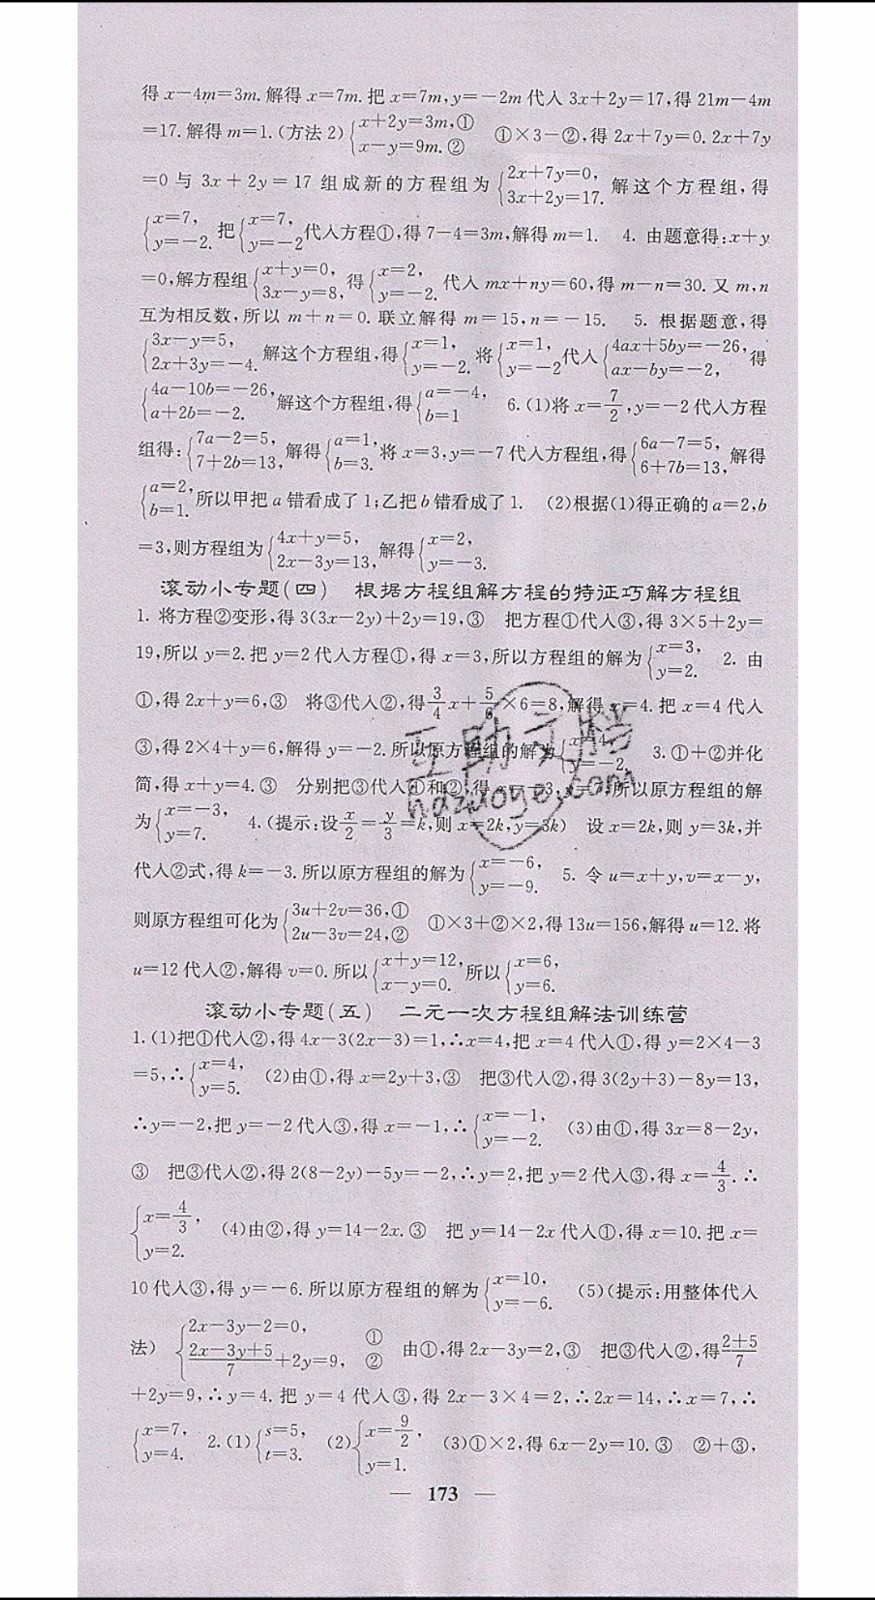 得 x－4m＝3m. 解得 x＝7m. 把 x＝7m, y＝－2m 代入 3x＋2y＝17, 得 21m－4m
＝17. 解得 m＝1. (方法 2) {x＋2y＝3m, ① x－y＝9m. ② ①×3－②, 得 2x＋7y＝0. 2x＋7y
＝0 与 3x＋2y＝17 组成新的方程组为 {2x＋7y＝0, 3x＋2y＝17. 解这个方程组, 得
{x＝7, y＝－2. 把 {x＝7, y＝－2 代入方程①, 得 7－4＝3m, 解得 m＝1. 4. 由题意得: x＋y
＝0, 解方程组 {x＋y＝0, 3x－y＝8, 得 {x＝2, y＝－2. 代入 mx＋ny＝60, 得 m－n＝30. 又 m, n
互为相反数, 所以 m＋n＝0. 联立解得 m＝15, n＝－15. 5. 根据题意, 得
{3x－y＝5, 2x＋3y＝－4. 解这个方程组, 得 {x＝1, y＝－2. 将 {x＝1, y＝－2 代入 {4ax＋5by＝－26, ax－by＝－2, 得
{4a－10b＝－26, a＋2b＝－2. 解这个方程组, 得 {a＝－4, b＝1 6. (1)将 x＝7/2, y＝－2 代入方程
组得: {7a－2＝5, 7＋2b＝13, 解得 {a＝1, b＝3. 将 x＝3, y＝－7 代入方程组, 得 {6a－7＝5, 6＋7b＝13, 解得
{a＝2, b＝1. 所以甲把 a 错看成了 1; 乙把 b 错看成了 1. (2)根据(1)得正确的 a＝2, b
＝3, 则方程组为 {4x＋y＝5, 2x－3y＝13, 解得 {x＝2, y＝－3.
滚动小专题(四) 根据方程组解方程的特征巧解方程组
1. 将方程②变形, 得 3(3x－2y)＋2y＝19, ③ 把方程①代入③, 得 3×5＋2y＝
19, 所以 y＝2. 把 y＝2 代入方程①, 得 x＝3, 所以方程组的解为 {x＝3, y＝2. 2. 由
①, 得 2x＋y＝6, ③ 将③代入②, 得 3/4 x＋5/6×6＝8, 解得 x＝4. 把 x＝4 代入
③, 得 2×4＋y＝6, 解得 y＝－2. 所以原方程组的解为 {x＝4, y＝－2. 3. ①＋②并化
简, 得 x＋y＝4. ③ 分别把③代入①和②, 得 3, x 所以原方程组的解
为 {x＝－3, y＝7. 4. (提示: 设 x/2＝y/3＝k, 则 x＝2k, y＝3k) 设 x＝2k, 则 y＝3k, 并
代入②式, 得 k＝－3. 所以原方程组的解为 {x＝－6, y＝－9. 5. 令 u＝x＋y, v＝x－y,
则原方程组可化为 {3u＋2v＝36, ① 2u－3v＝24, ② ①×3＋②×2, 得 13u＝156, 解得 u＝12. 将
u＝12 代入②, 解得 v＝0. 所以 {x＋y＝12, x－y＝0. 所以 {x＝6, y＝6.
滚动小专题(五) 二元一次方程组解法训练营
1. (1)把①代入②, 得 4x－3(2x－3)＝1, ∴x＝4, 把 x＝4 代入①, 得 y＝2×4－3
＝5, ∴{x＝4, y＝5. (2)由①, 得 x＝2y＋3, ③ 把③代入②, 得 3(2y＋3)－8y＝13,
∴y＝－2, 把 y＝－2 代入③, 得 x＝－1, ∴{x＝－1, y＝－2. (3)由①, 得 3x＝8－2y,
③ 把③代入②, 得 2(8－2y)－5y＝－2, ∴y＝2, 把 y＝2 代入③, 得 x＝4/3. ∴
{x＝4/3, y＝2. (4)由②, 得 y＝14－2x. ③ 把 y＝14－2x 代入①, 得 x＝10. 把 x＝
10 代入③, 得 y＝－6. 所以原方程组的解为 {x＝10, y＝－6. (5)(提示: 用整体代入
法) {2x－3y－2＝0, ① (2x－3y＋5)/7＋2y＝9, ② 由①, 得 2x－3y＝2, ③ 把③代入②, 得 (2＋5)/7
＋2y＝9, ∴y＝4. 把 y＝4 代入③, 得 2x－3×4＝2, ∴2x＝14, ∴x＝7, ∴
{x＝7, y＝4. 2. (1) {s＝5, t＝3. (2) {x＝9/2, y＝1. (3)①×2, 得 6x－2y＝10. ③ ②＋③,
— 173 —
互助文档
hazuoye.com